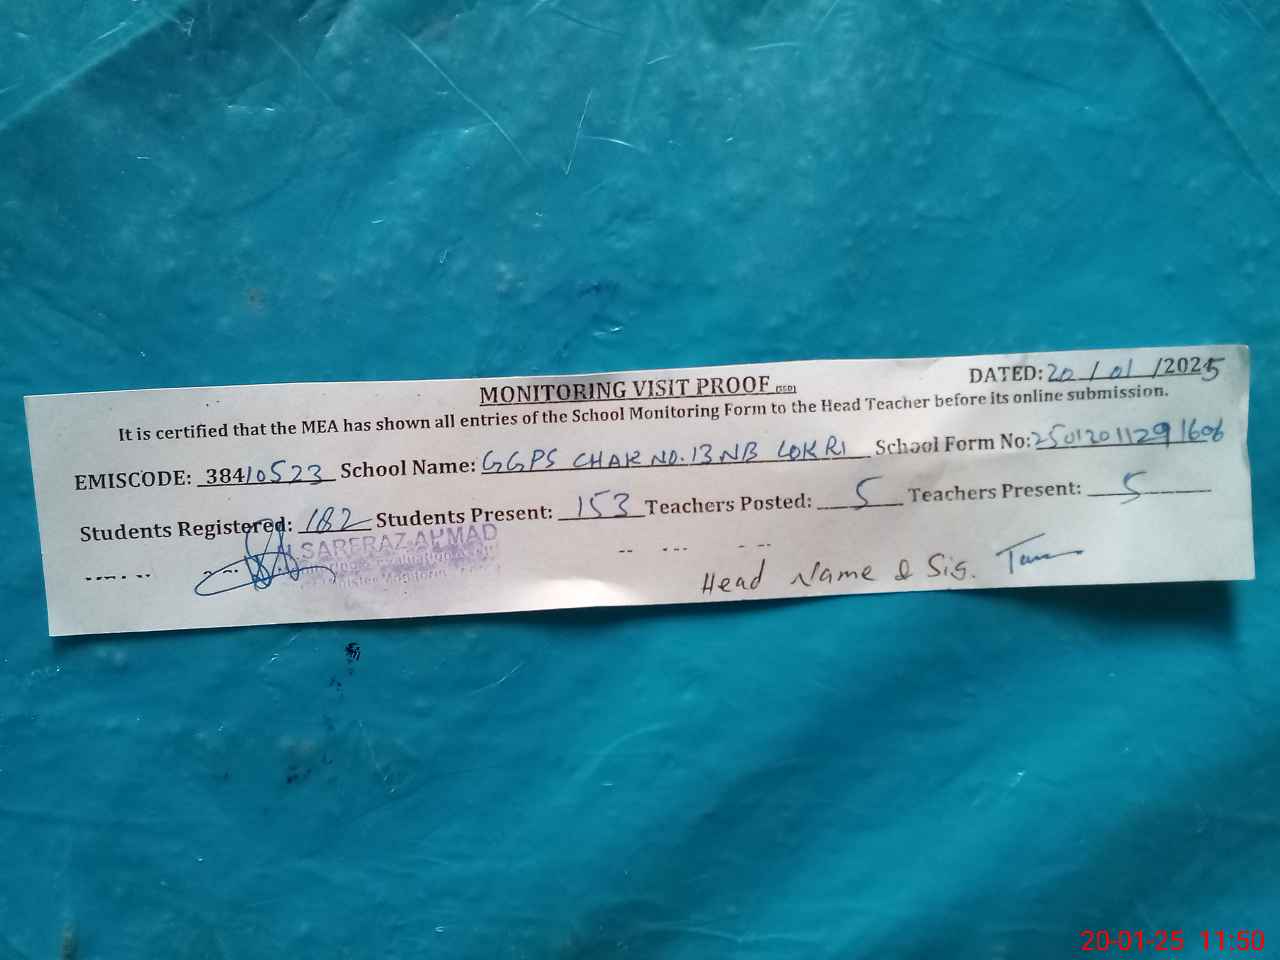 MONITORING VISIT PROOF (SSD)
DATED: 20/01/2025
It is certified that the MEA has shown all entries of the School Monitoring Form to the Head Teacher before its online submission.
EMISCODE: 38410523 School Name: GGPS CHAK NO. 13 NB LOKRI School Form No: 25012011291606
Students Registered: 182 Students Present: 153 Teachers Posted: 5 Teachers Present: 5
M.SARFRAZ AHMAD
Head Name & Sig.
20-01-25 11:50